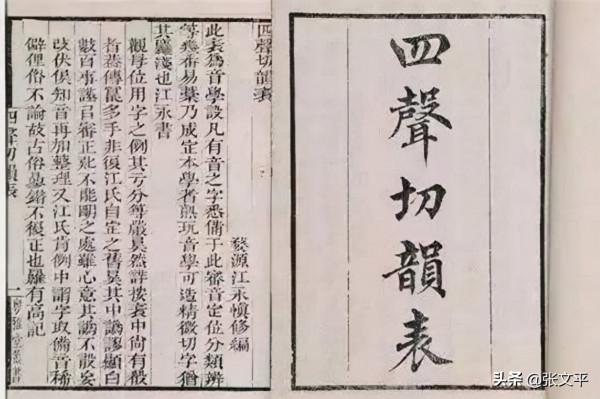 四聲切韻表
四聲切韻表
婺源江永慎修編
此表為音學設凡有音之字悉備于此審音定位分類辨
等悉番易葉乃成定本學者熟玩音學可造精微切字猶
其麤淺也江永書
觀母位用字之例其亏分等嚴然詳按表中尚有殽
者葢傳冩多手非復江氏自定之舊其中譌謬顯白
數百事謹㠯審正不能朙之處雖心意其譌不敢妄
改伏俟知音再加整理又江氏例中謂字取備音稀
僻俚俗不論故古俗錯不復正也雖有高記
四聲切韻表
一
粵雅堂叢書
头条 @张文平